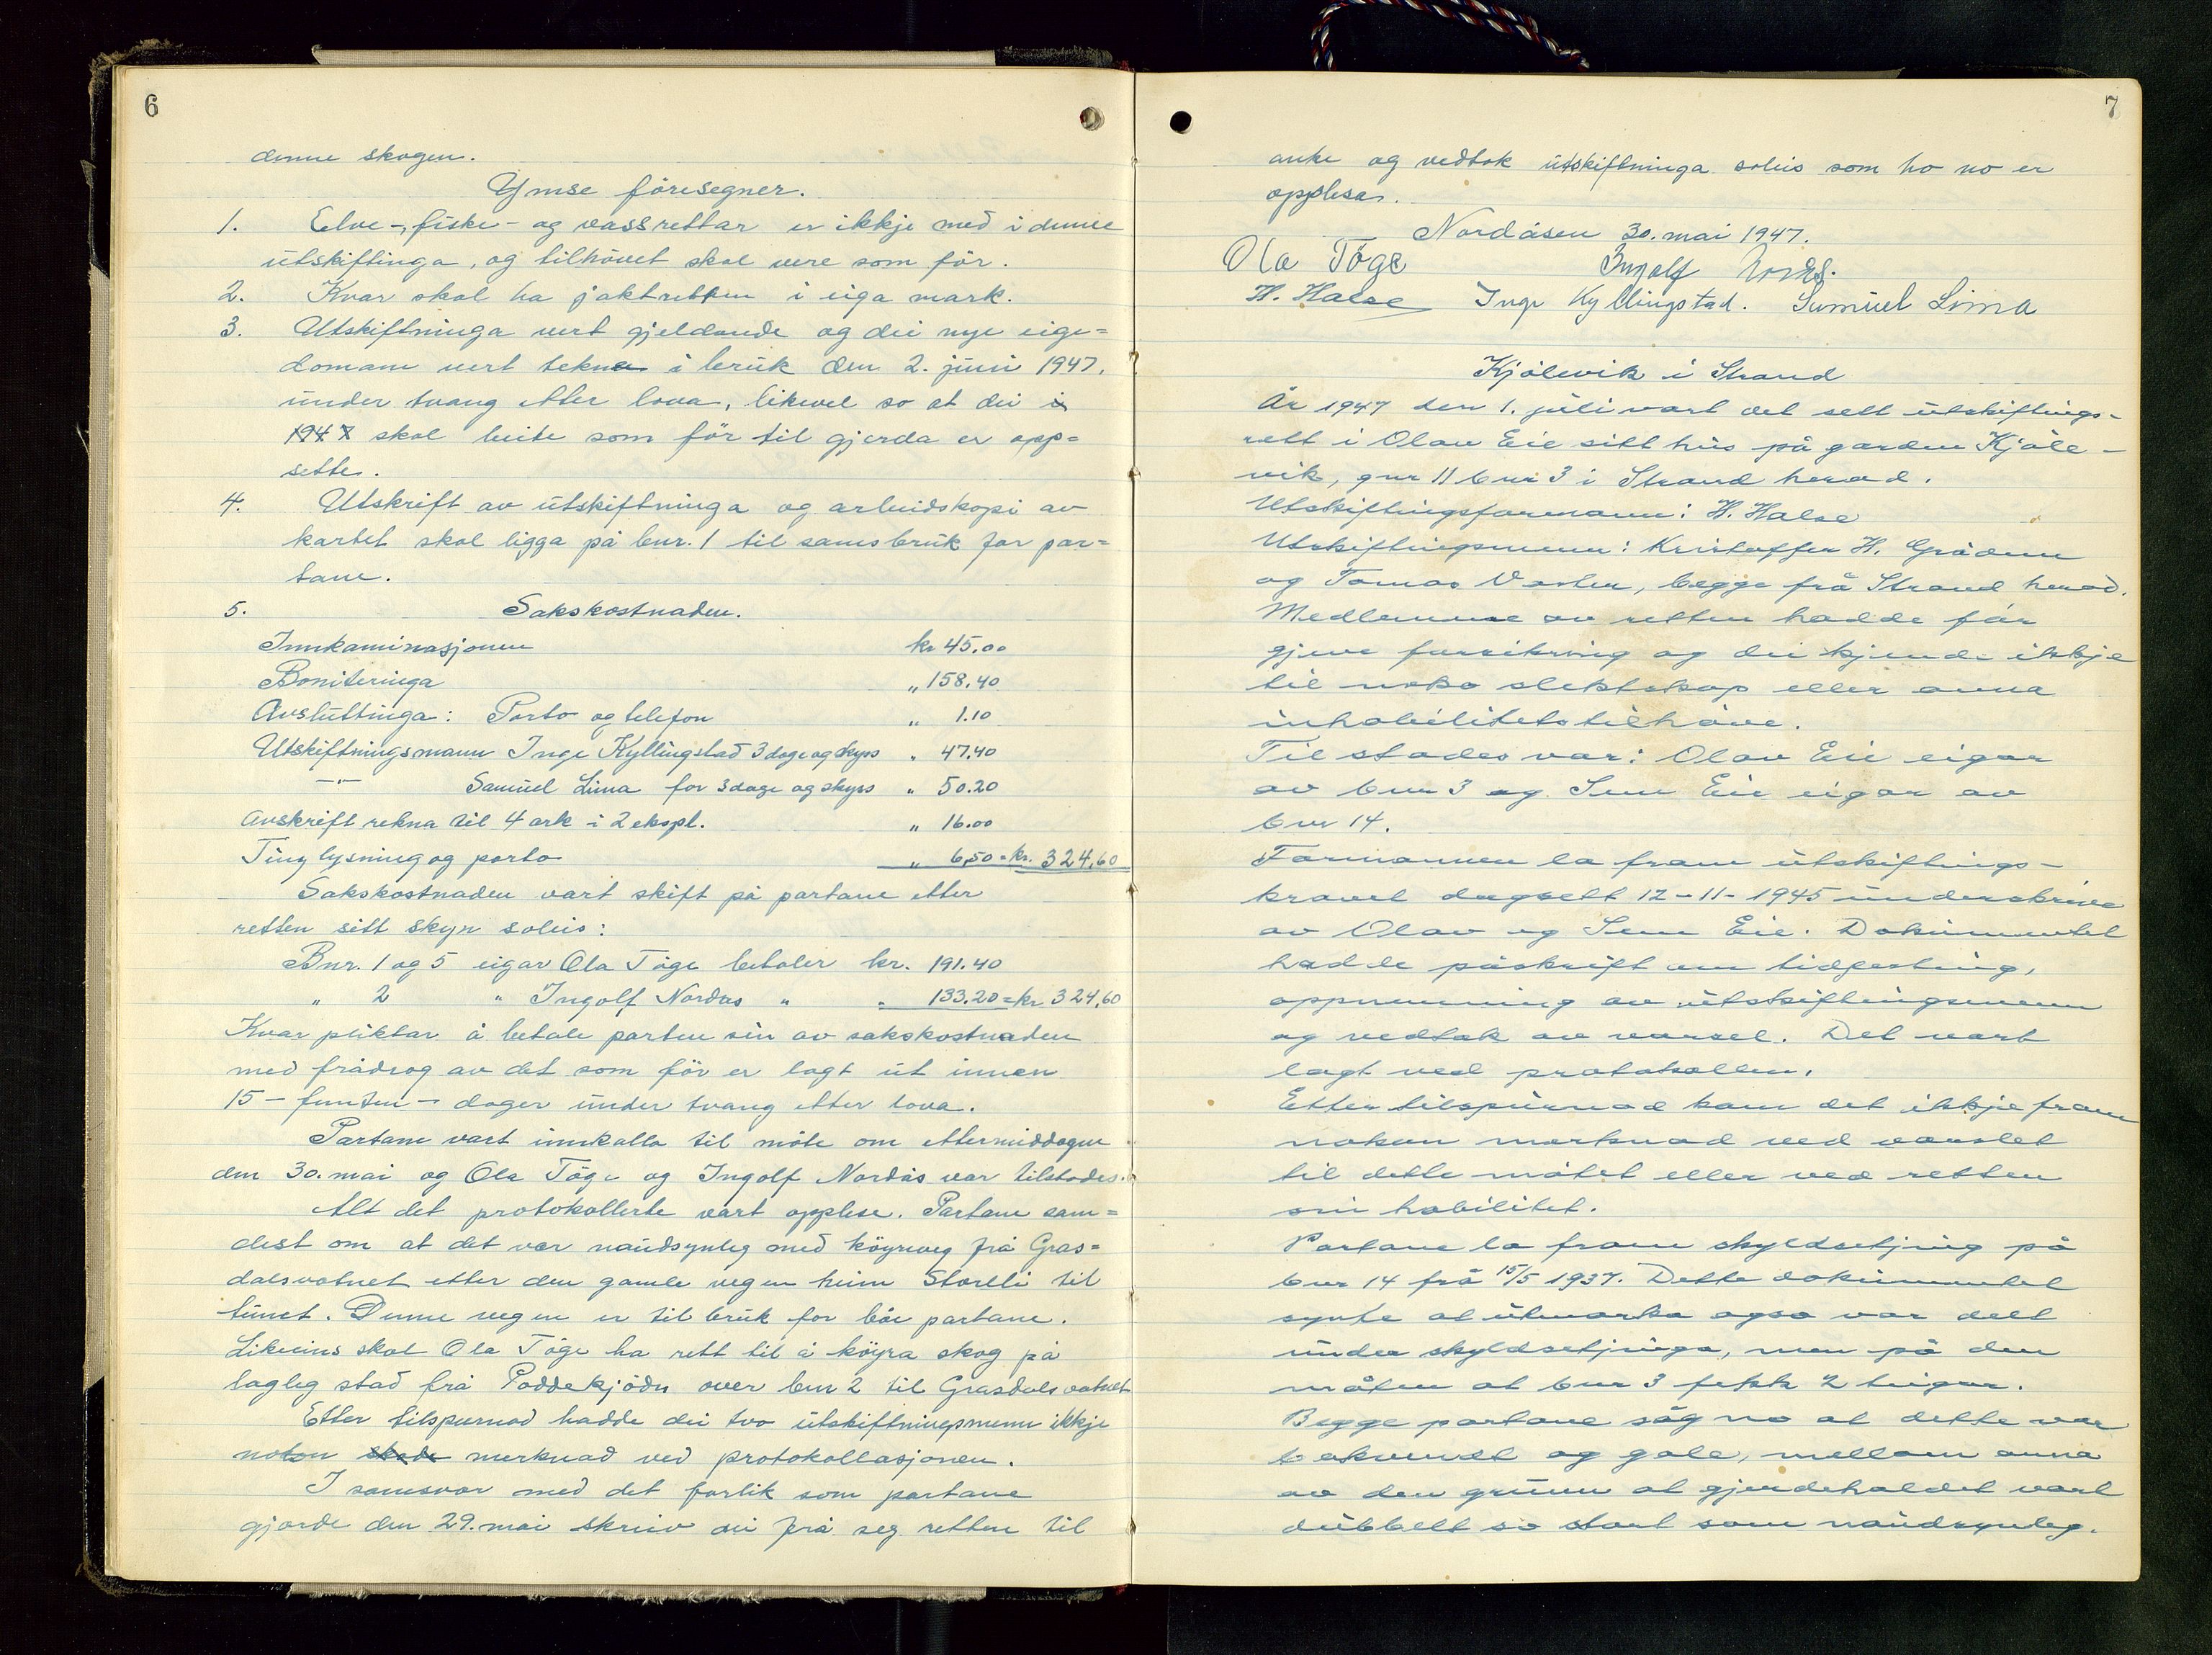 6
denne skogen.
Ymse föresegner.
1. Elve-, fiske- og vassrettar er ikkje med i denne
utskiftinga, og tilhövet skal vere som för.
2. Kvar skal ha jaktretten i eiga mark.
3. Utskiftninga vert gjeldande og dei nye eige=
domane vert tekne i bruk den 2. juni 1947.
under tvang etter lova, likevel so at dei i
1947 skal beite som för til gjerda er opp=
sette.
4. Utskrift av utskiftninga og arbeidskopi av
kartet skal ligga på bnr. 1 til samsbruk for par=
tane.
5. Sakskostnaden.
Innkaminasjonen kr 45.00
Boniteringa " 158.40
Avsluttinga: Porto og telefon " 1.10
Utskiftningsmann Inge Kyllingstad 3 dage og skyss " 47.40
—"— Samuel Lima for 3 dage og skyss " 50.20
Avskrift rekna til 4 ark i 2 ekspl. " 16.00
Tinglysning og porto " 6,50 = kr. 324,60
Sakskostnaden vart skift på partane etter
retten sitt skyn soleis:
Bnr. 1 og 5 eigar Ola Töge betaler kr. 191.40
" 2 " Ingolf Nordås " " 133.20 = kr 324,60
Kvar pliktar å betale parten sin av sakskostnaden
med frådrag av det som för er lagt ut innen
15 - femten - dager under tvang etter lova.
Partane vart innkalla til möte om ettermiddagen
den 30. mai og Ola Töge og Ingolf Nordås var tilstades.
Alt det protokollerte vart opplese. Partane sam=
dest om at det var naudsynleg med köyreveg frå Gras=
dalsvatnet etter den gamle vegen heim Storeli til
tunet. Denne vegen er til bruk for båe partane.
Likeeins skal Ola Töge ha rett til å köyra skog på
lagleg stad frå Poddekjödn over bnr 2 til Grasdalsvatnet
Etter tilspurnad hadde dei tvo utskiftningsmenn ikkje
noken merknad ved protokollasjonen.
I samsvar med det forlik som partane
gjorde den 29. mai skreiv dei frå seg retten til
7
anke og vedtok utskiftninga soleis som ho no er
opplesen.
Nordåsen 30. mai 1947.
Ola Töge Ingolf Nordås.
H. Halse Inge Kyllingstad. Samuel Lima
Kjölevik i Strand
År 1947 den 1. juli vart det sett utskiftings-
rett i Olav Eie sitt hus på garden Kjöle-
vik, gnr 11 bnr 3 i Strand herad.
Utskiftingsformann: H. Halse
Utskiftingsmenn: Kristoffer H. Grådem
og Tomas Vaster, begge frå Strand herad.
Medlemmene av retten hadde för
gjeve forsikring og dei kjende ikkje
til noko slektskap eller anna
inhabilitetstilhöve.
Til stades var: Olav Eie eigar
av bnr 3 og Sem Eie eigar av
bnr 14.
Formannen la fram utskiftings-
kravet dagsett 12-11-1945 underskrive
av Olav og Sem Eie. Dokumentet
hadde påskrift om tidfesting,
oppnemning av utskiftingsmenn
og vedtak av varsel. Det vart
lagt ved protokollen.
Etter tilspurnad kom det ikkje fram
nokon merknad ved varslet
til dette mötet eller ved retten
sin habilitet.
Partane la fram skyldsetjing på
bnr 14 frå 15/5 1937. Dette dokumentet
synte at utmarka også var delt
under skyldsetjinga, men på den
måten at bnr 3 fekk 2 teigar.
Begge partane såg no at dette var
bakvendt og gale, mellom anna
av den grunn at gjerdehaldet vart
dubbelt so stort som naudsynleg.